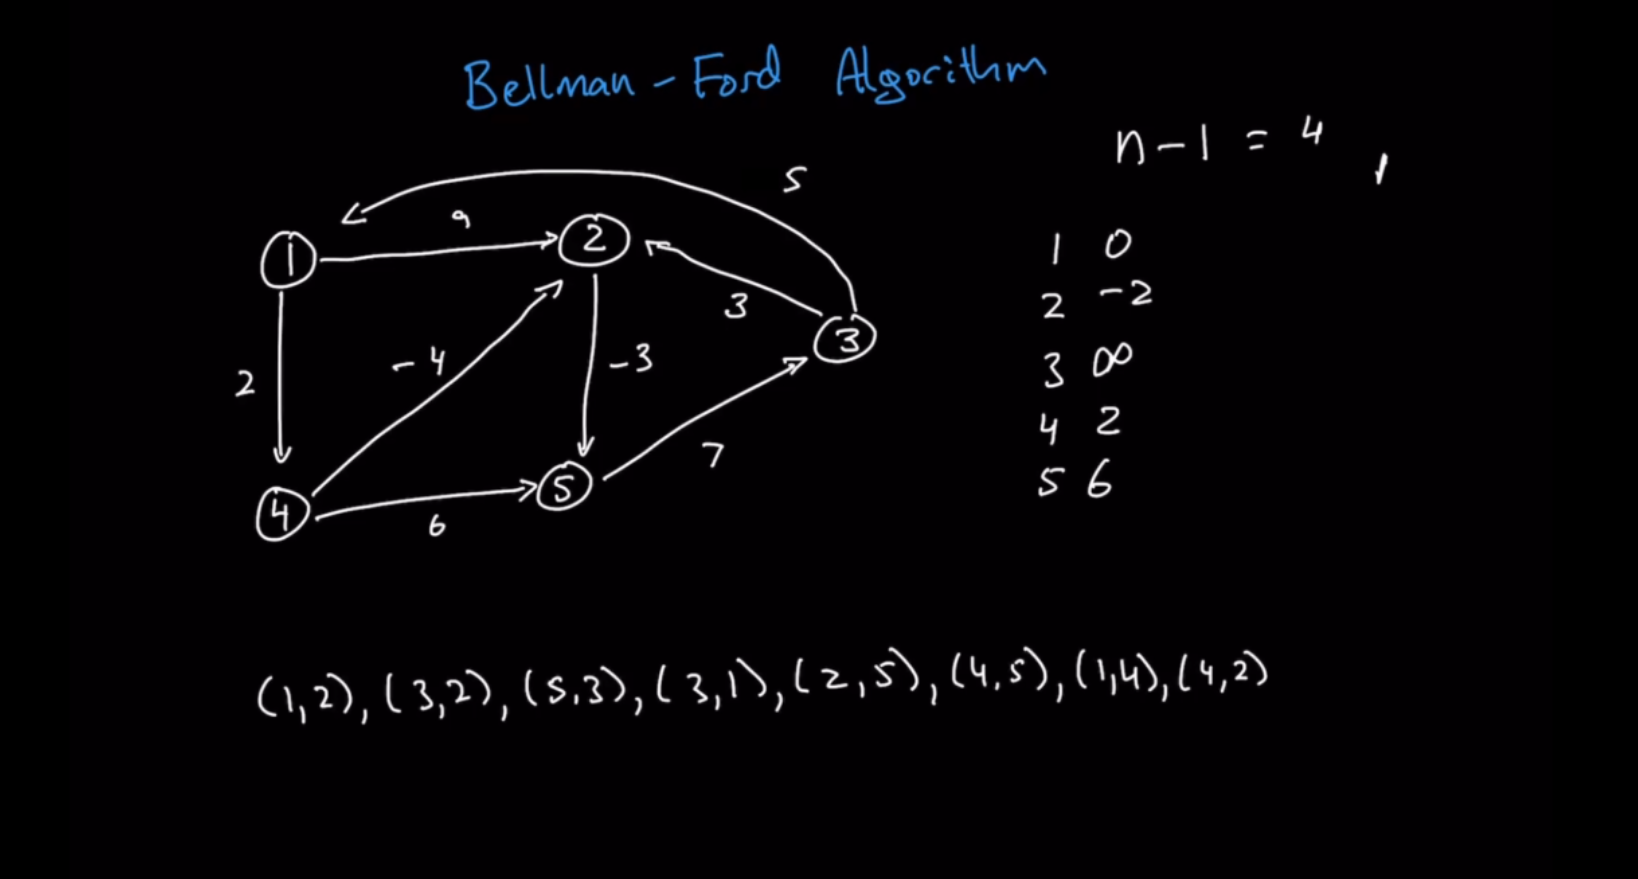 Bellman - Ford Algorithm
n - 1 = 4
5
9
1
2
3
3
2
-4
-3
7
4
5
6
1 0
2 -2
3 ∞
4 2
5 6
(1,2), (3,2), (5,3), (3,1), (2,5), (4,5), (1,4), (4,2)